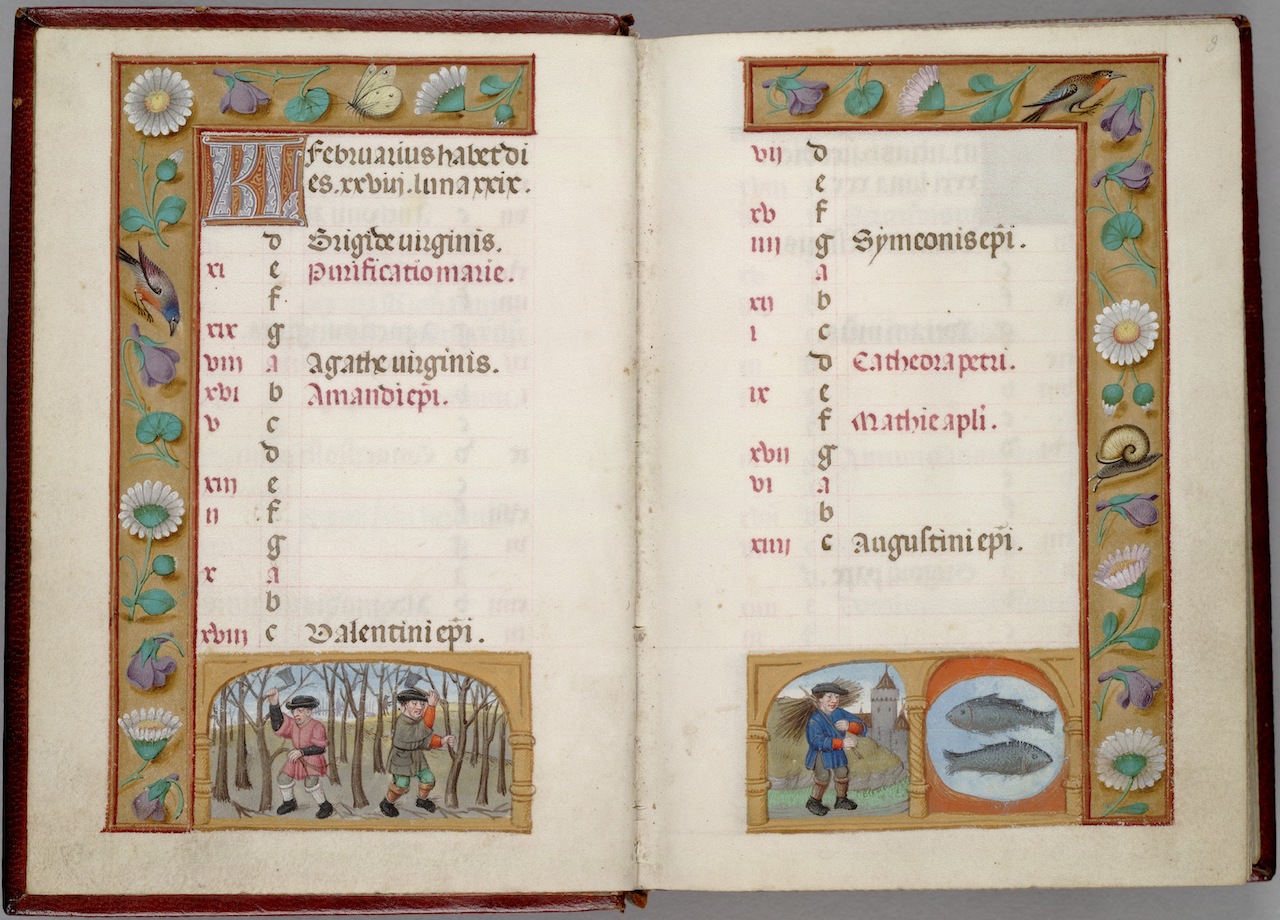 KL Februarius habet di
es. xxviij. luna xxix.
d Brigide uirginis.
xi e Purificatio marie.
f
xix g
viii a Agathe uirginis.
xvi b Amandi ep̃i.
v c
d
xiii e
ii f
g
x a
b
xviii c Valentini ep̃i.
8
vii d
e
xv f
iiii g Symeonis ep̃i.
a
xii b
i c
d Cathedra petri.
ix e
f Mathie apl̃i.
xvii g
vi a
b
xiiii c Augustini ep̃i.